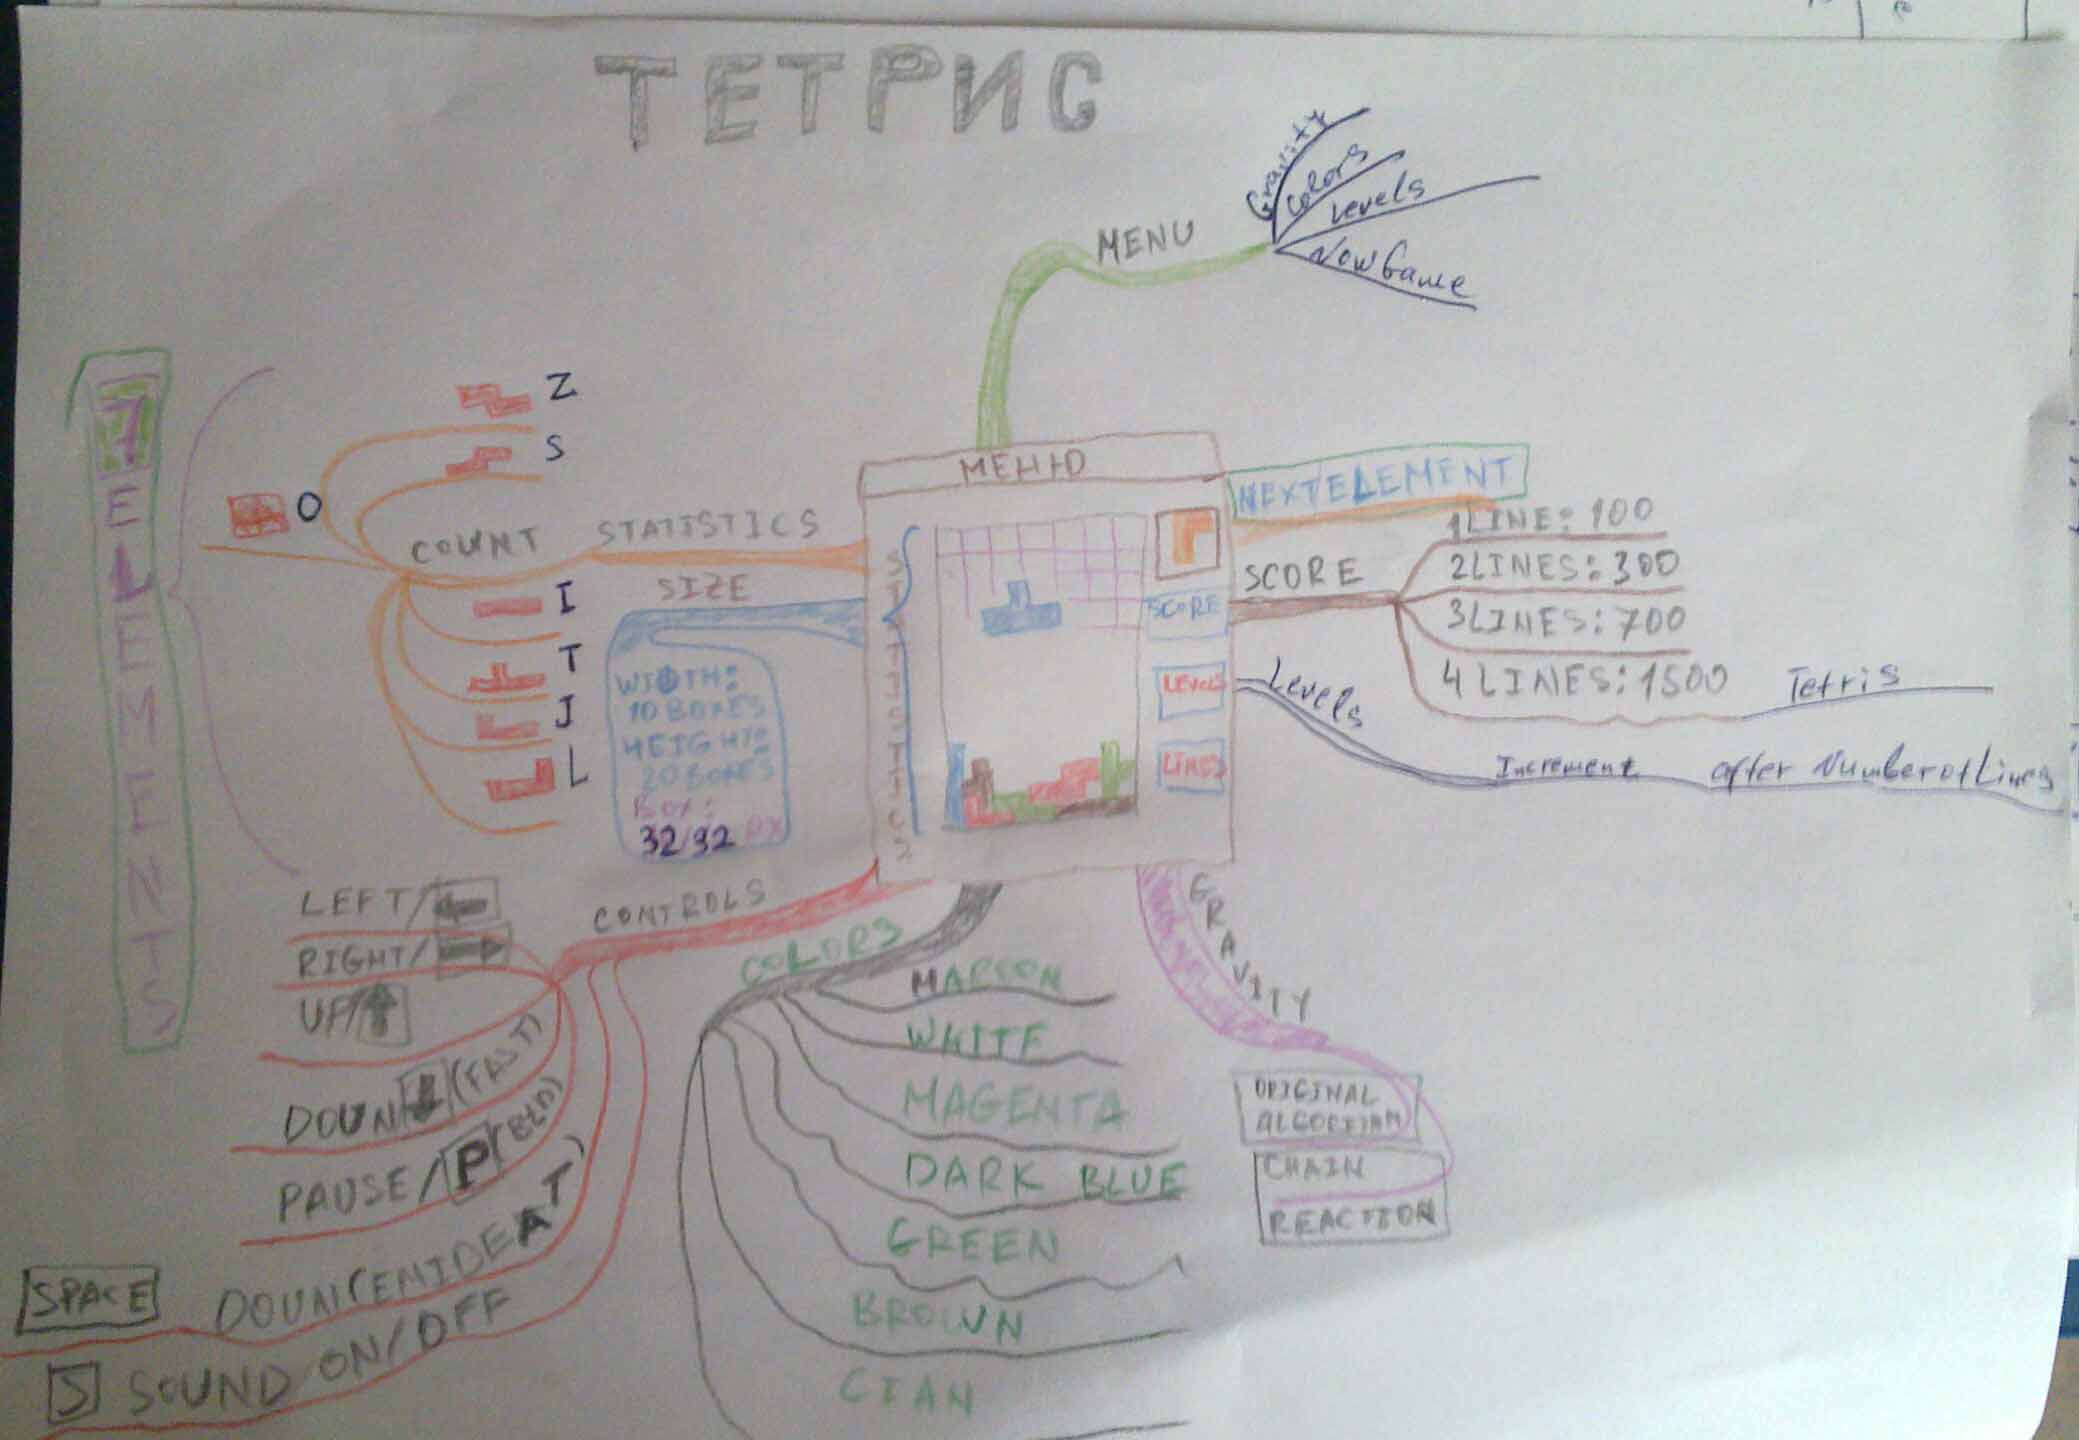 ТЕТРИС
Gravity
Colors
Levels
New Game
MENU
7
ELEMENTS
Z
S
O
COUNT
STATISTICS
I
T
J
L
SIZE
WIDTH:
10 BOXES
HEIGHT:
20 BOXES
BOX:
32/32 PX
МЕНЮ
STATISTICS
SCORE
LEVELS
LINES
NEXT ELEMENT
SCORE
1 LINE: 100
2 LINES: 300
3 LINES: 700
4 LINES: 1500
Tetris
Levels
Increment after Number of Lines
CONTROLS
LEFT/
RIGHT/
UP/
DOUN (FAST)
PAUSE/P
SPACE DOUN(EMIDEAT)
S SOUND ON/OFF
COLORS
MAROON
WHITE
MAGENTA
DARK BLUE
GREEN
BROWN
CIAN
GRAVITY
ORIGINAL
CHAIN
REACTION